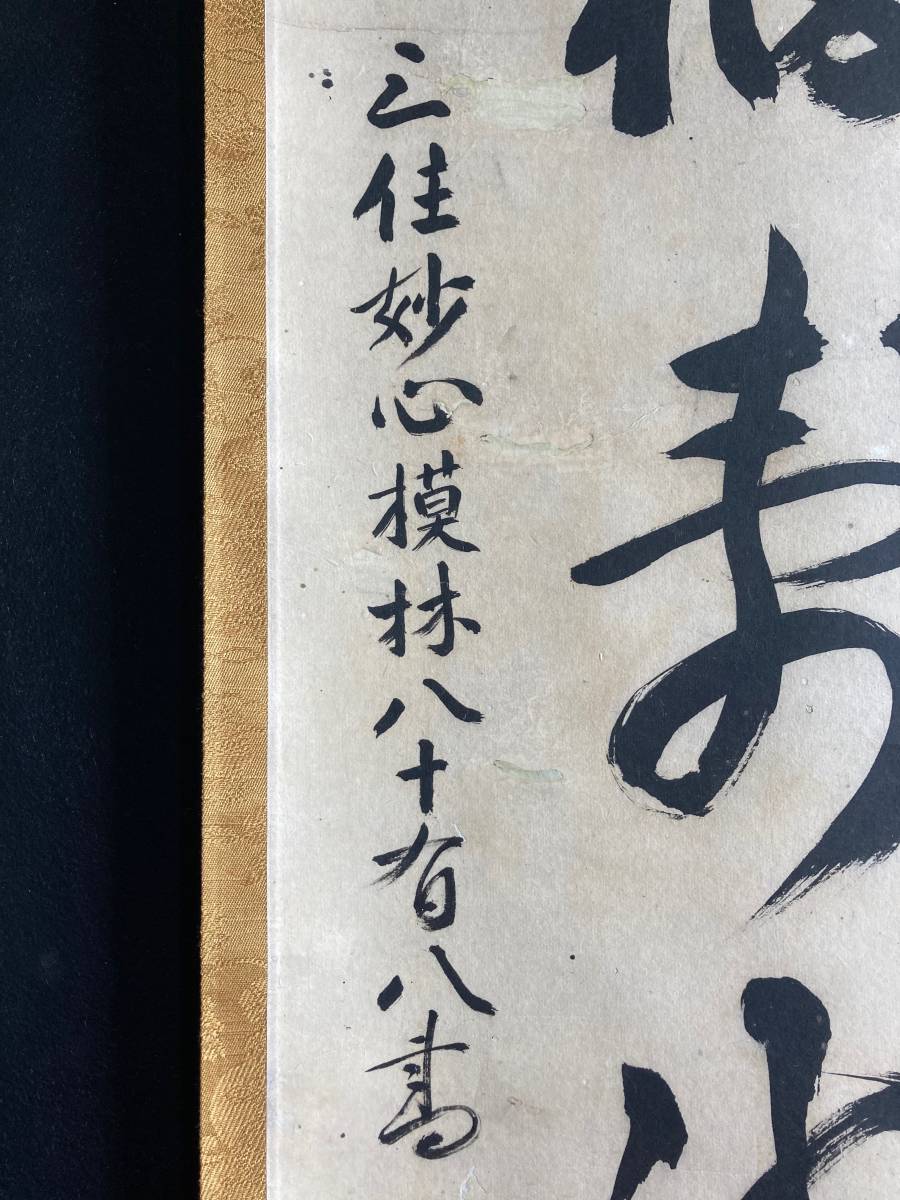 寿
三住妙心模林八十有八書